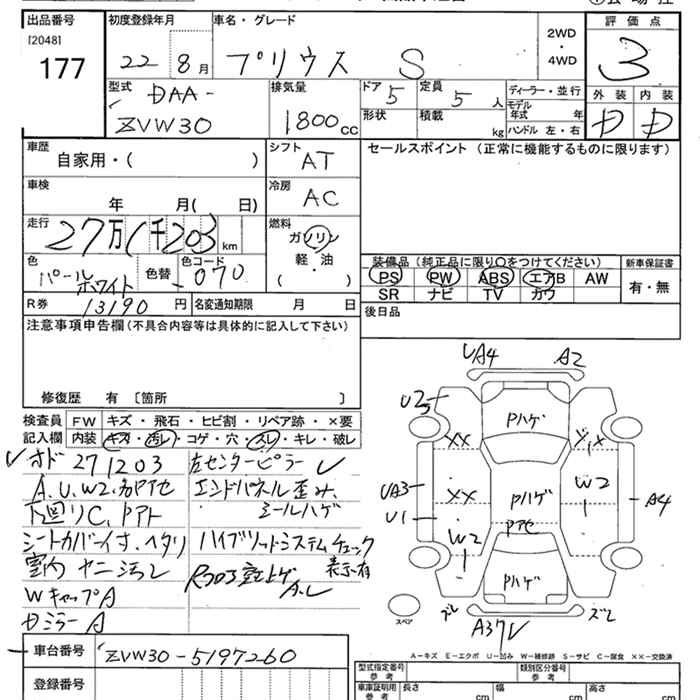 出品番号
[2048]
177
初度登録年月
22 8月
車名・グレード
プリウス S
2WD
・
4WD
評価点
3
外装 内装
D D
型式
DAA-
ZVW30
排気量
1800cc
ドア 5
定員 5人
形状
積載 kg
ディーラー・並行
モデル
年式 年
ハンドル 左・右
車歴
自家用・( )
シフト
AT
車検
年 月( 日)
冷房
AC
走行
27万(千203 km
燃料
ガソリン
軽・油
( )
色
パールホワイト
色替
色コード
070
R券 13190円
名変通知期限 月 日
セールスポイント (正常に機能するものに限ります)
装備品(純正品に限り○をつけてください)
PS PW ABS エアB AW
SR ナビ TV カワ
新車保証書
有・無
後日品
注意事項申告欄(不具合内容等は具体的に記入して下さい)
修復歴 有 〔箇所 〕
検査員記入欄
FW キズ・飛石・ヒビ割・リペア跡・×要
内装 キズ・汚レ・コゲ・穴・スレ・キレ・破レ
オド 271203
A.U.W2.
下廻りC.
シートカバー付.ヘタリ
室内ヤニ汚レ
WキャップA
DミラーA
左センターピラー
エンドパネル歪み.
ミールハゲ
ハイブリッドシステムチェック
表示有
A.L
UA4 A2
U2
Pハゲ
XX
UA3
U1
XX
W2
W2
A4
Pハゲ
Pハゲ
スレ スレ
A3
スペア
A-キズ E-エクボ U-凹み W-補修跡 S-サビ C-腐食 XX-交換済
車台番号
ZVW30-5197260
登録番号
型式指定番号
参考
類別区分番号
参考
車庫証明用
参考
長さ cm
幅 cm
高さ cm